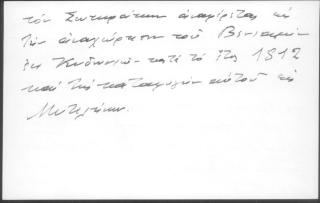 τὸν Σωκράτην ἀναφέρεται εἰς
τὴν ἀναχώρησιν τοῦ Βενιαμὶν
ἐκ Κυδωνιῶν κατὰ τὸ ἔτος 1812
καὶ τὴν καταφυγὴν αὐτοῦ εἰς
Μυτιλήνην.